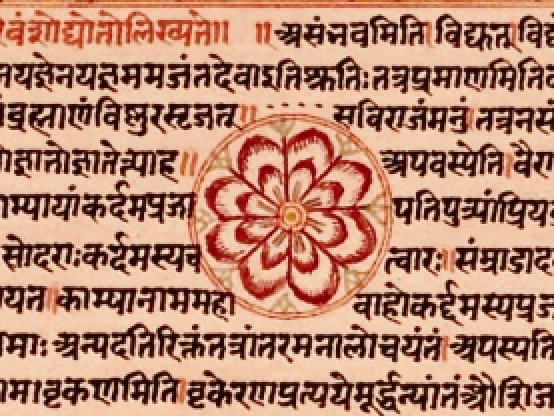 वंशोद्योतोलिख्यते॥ ॥असंभवमिति विद्धत् वि
यज्ञेनयज्ञममजंतदेवाऽतिश्रुतिः तत्रप्रमाणमिति
ब्रह्माणंविष्णुरसृजत्॥ सविराजंमनुं तत्र
ज्ञातोज्ञातेत्याह॥ अपवस्येति वैरा
काम्यायांकर्दमप्रजा पतिपुत्र्यांप्रिय
सोदराः कर्दमस्यच त्वारः संम्राडाद
काम्यानाममहा वाहोकर्दमस्यप्रज
अन्यदतिरिक्तंतत्रांतरमनालोचयंतं अपस्यति
वृकणमिति वृकेरणप्रत्ययेमूर्द्धत्यांतं